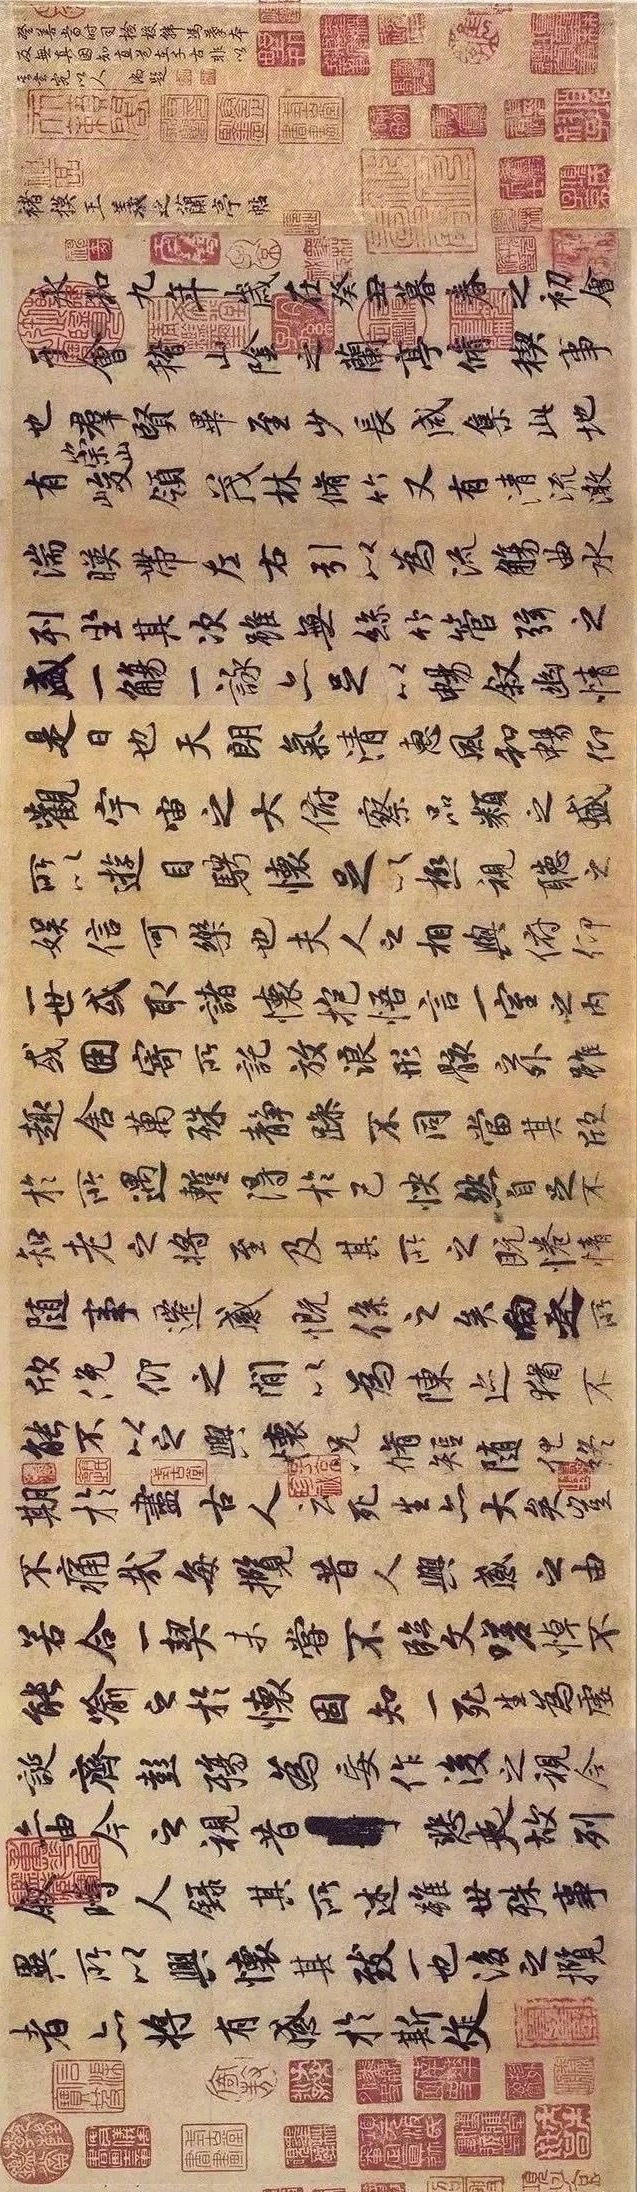 褚摸王羲之蘭亭帖
永和九年歲在癸丑暮春之初會
于會稽山陰之蘭亭脩稧事
也羣賢畢至少長咸集此地
有崇山峻領茂林脩竹又有清流激
湍暎帶左右引以為流觴曲水
列坐其次雖無絲竹管弦之
盛一觴一詠亦足以暢敘幽情
是日也天朗氣清惠風和暢仰
觀宇宙之大俯察品類之盛
所以遊目騁懷足以極視聽之
娛信可樂也夫人之相與俯仰
一世或取諸懷抱悟言一室之內
或因寄所託放浪形骸之外雖
趣舍萬殊靜躁不同當其欣
於所遇蹔得於己怏然自足不
知老之將至及其所之既惓情
隨事遷感慨係之矣向之所
欣俛仰之閒以為陳迹猶不
能不以之興懷況脩短隨化終
期於盡古人云死生亦大矣豈
不痛哉每攬昔人興感之由
若合一契未嘗不臨文嗟悼不
能喻之於懷固知一死生為虛
誕齊彭殤為妄作後之視今
亦由今之視昔悲夫故列
敘時人錄其所述雖世殊事
異所以興懷其致一也後之攬
者亦將有感於斯文